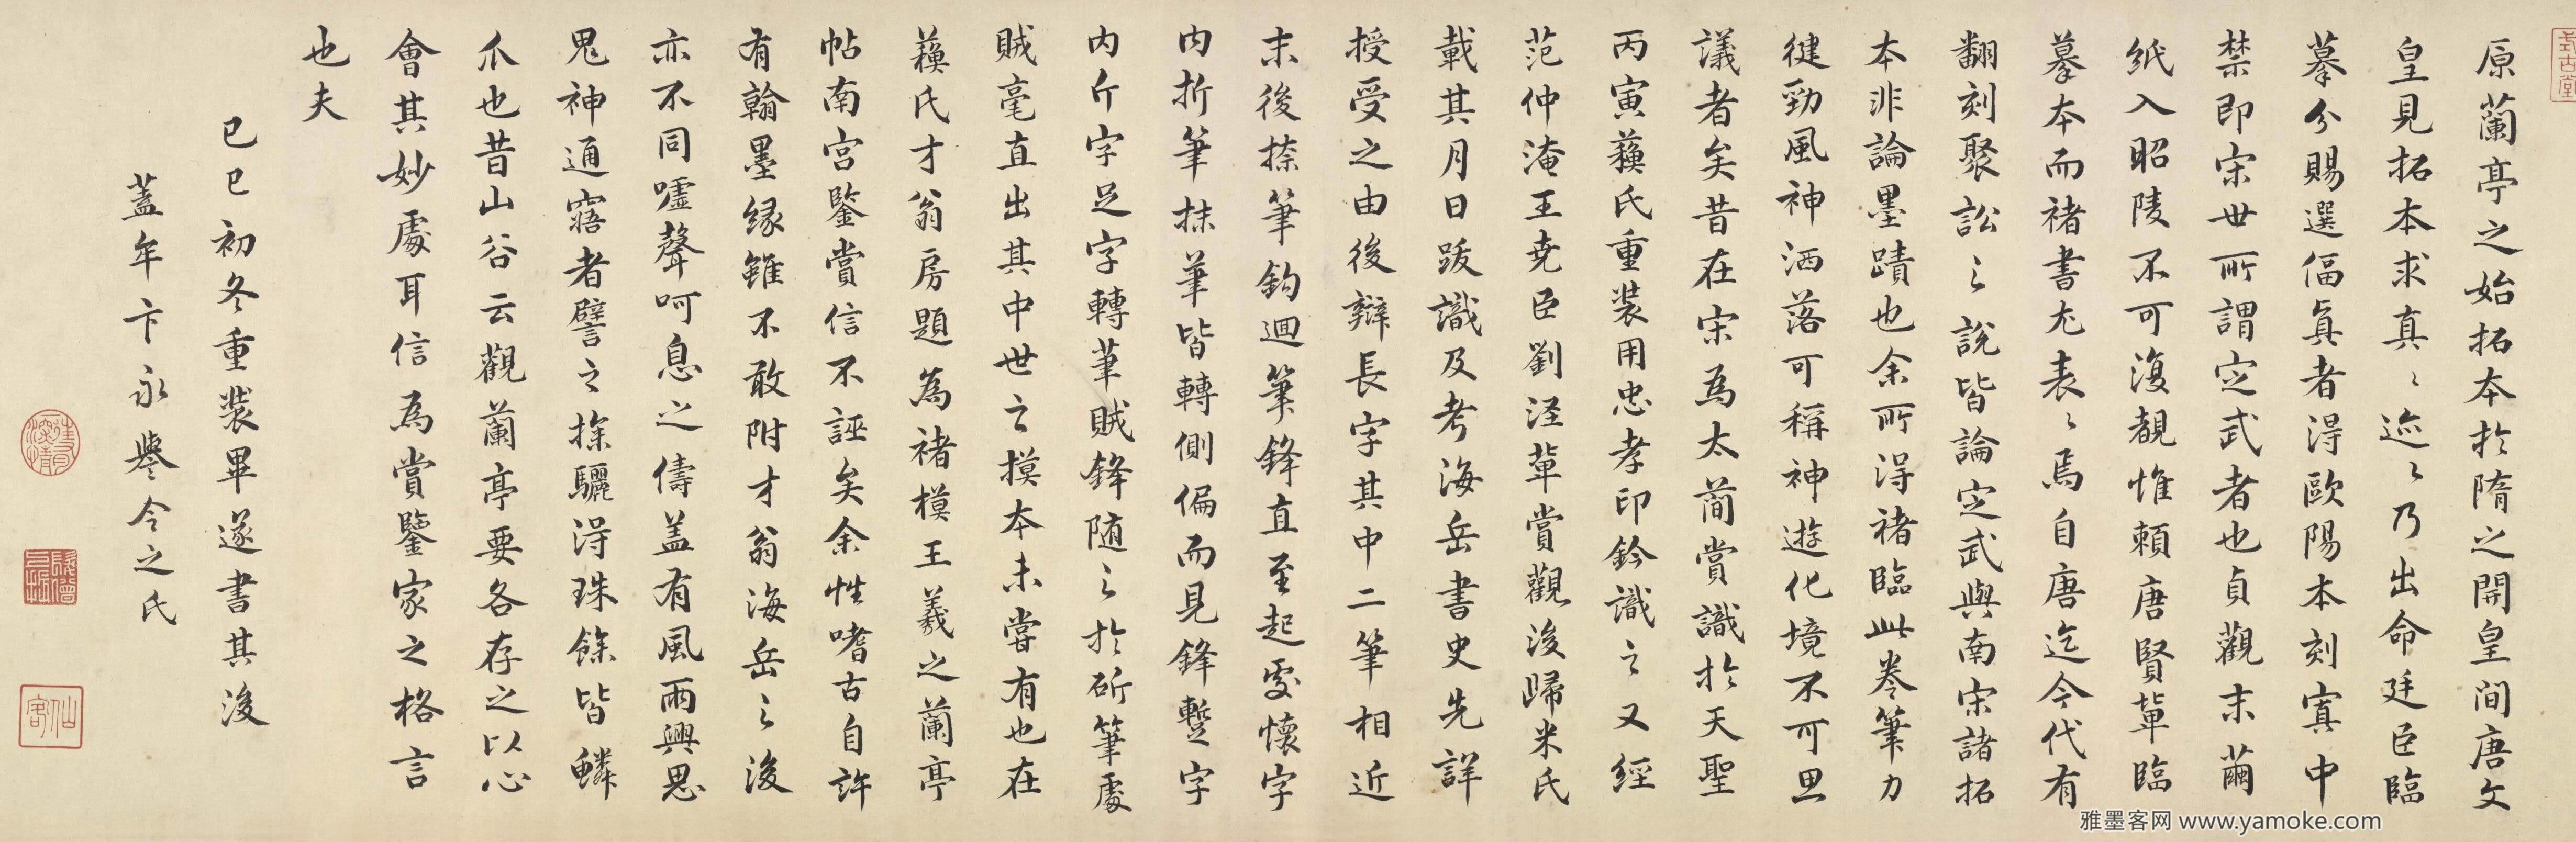 原蘭亭之始拓本於隋之開皇間唐文
皇見拓本求真々迹々乃出命廷臣臨
摹分賜選偪真者得歐陽本刻寘中
禁即宋世所謂定武者也貞觀末繭
紙入昭陵不可復覩惟賴唐賢輩臨
摹本而褚書尤表々焉自唐迄今代有
翻刻聚訟之說皆論定武與南宋諸拓
本非論墨蹟也余所得褚臨此卷筆力
健勁風神洒落可稱神遊化境不可思
議者矣昔在宋為太簡賞識於天聖
丙寅蘇氏重裝用忠孝印鈐識之又經
范仲淹王堯臣劉涇輩賞觀後歸米氏
載其月日跋識及考海岳書史先詳
授受之由後辯長字其中二筆相近
末後捺筆鈎迴筆鋒直至起處懷字
内折筆抹筆皆轉側偏而見鋒蹔字
内斤字足字轉筆賊鋒随之於斫筆處
賊毫直出其中世之摸本未嘗有也在
蘇氏才翁房題為褚模王羲之蘭亭
帖南宮鑒賞信不誣矣余性嗜古自許
有翰墨緣雖不敢附才翁海岳之後
亦不同噓聲呵息之儔盖有風雨興思
鬼神通寤者譬之探驪得珠餘皆鱗
爪也昔山谷云觀蘭亭要各存之以心
會其妙處耳信為賞鑒家之格言
也夫
己巳初冬重裝畢遂書其後
蓋牟卞永譽令之氏
式古堂
仙客
雅墨客网 www.yamoke.com